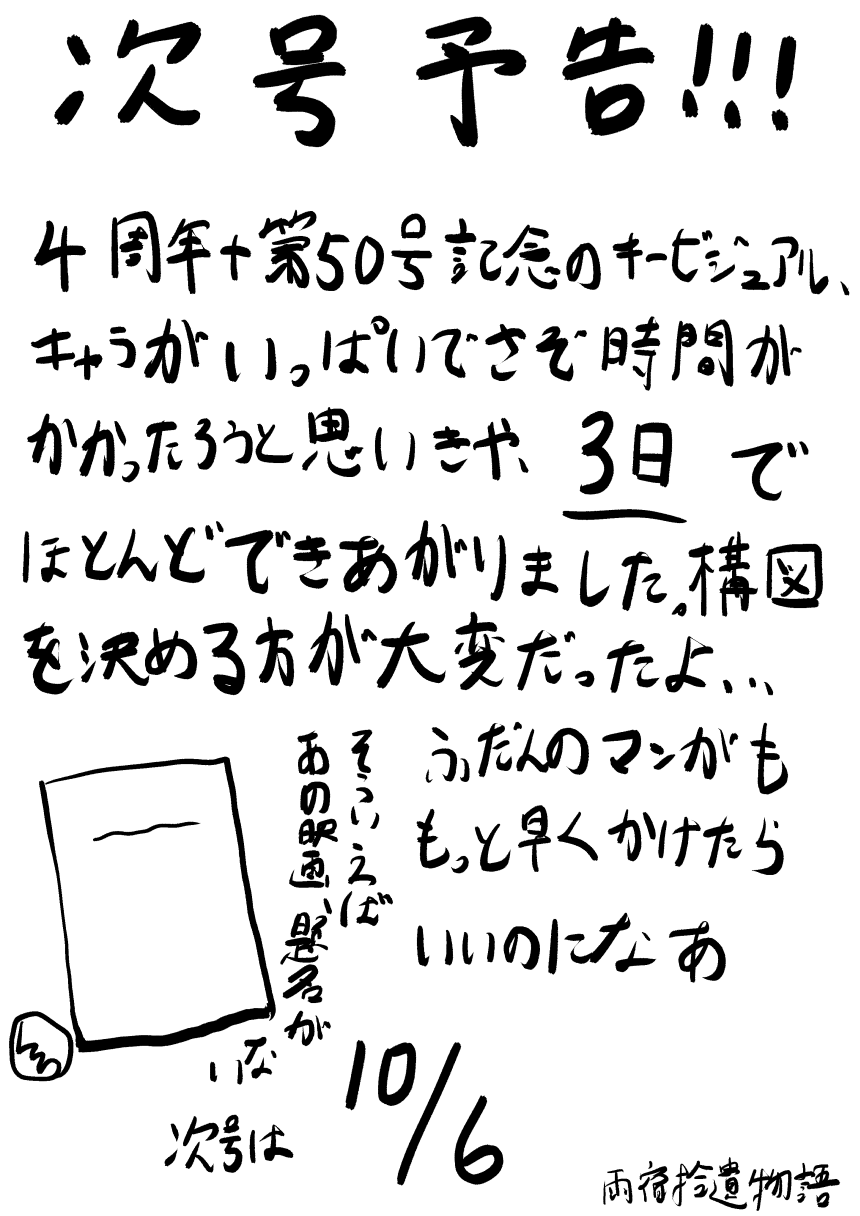 次号予告!!!
4周年+第50号記念のキービジュアル、
キャラがいっぱいでさぞ時間が
かかったろうと思いきや、3日で
ほとんどできあがりました。構図
を決める方が大変だったよ...
ふだんのマンがも
もっと早くかけたら
いいのになあ
そういえば
あの映画、題名が
ない
次号は
10/6
雨宿拾遺物語